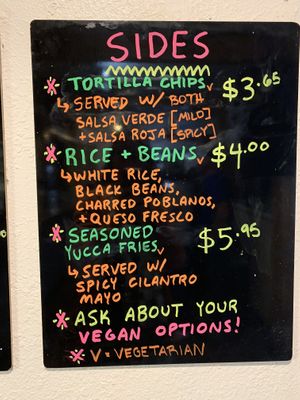 SIDES
* TORTILLA CHIPS V $3.65
↳ SERVED W/ BOTH
SALSA VERDE [MILD]
+ SALSA ROJA [SPICY]
* RICE + BEANS V $4.00
↳ WHITE RICE,
BLACK BEANS,
CHARRED POBLANOS,
+ QUESO FRESCO
* SEASONED
YUCCA FRIES V $5.95
↳ SERVED W/
SPICY CILANTRO
MAYO
* ASK ABOUT YOUR
VEGAN OPTIONS!
* V = VEGETARIAN